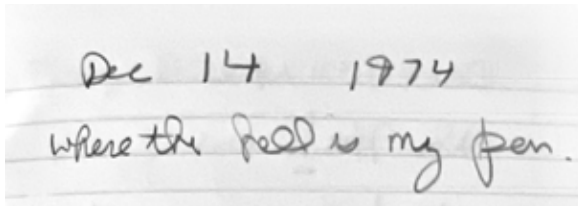 Dec 14 1974
where the hell is my pen.